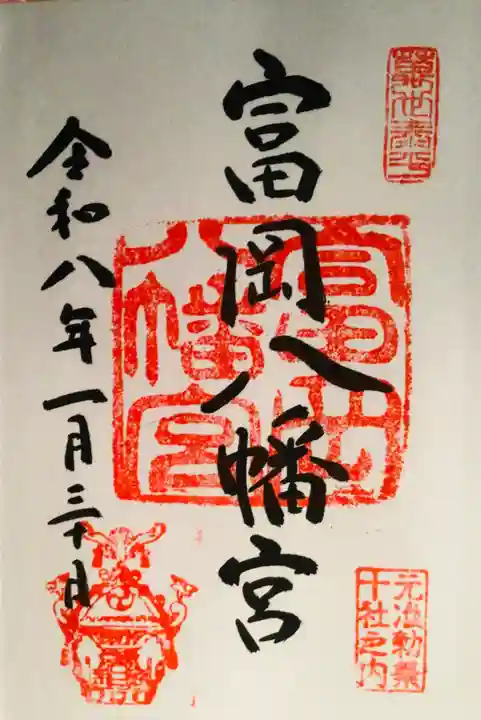 富岡八幡宮
富岡
八幡宮
元准勅祭
十社之内
令和八年一月三十日